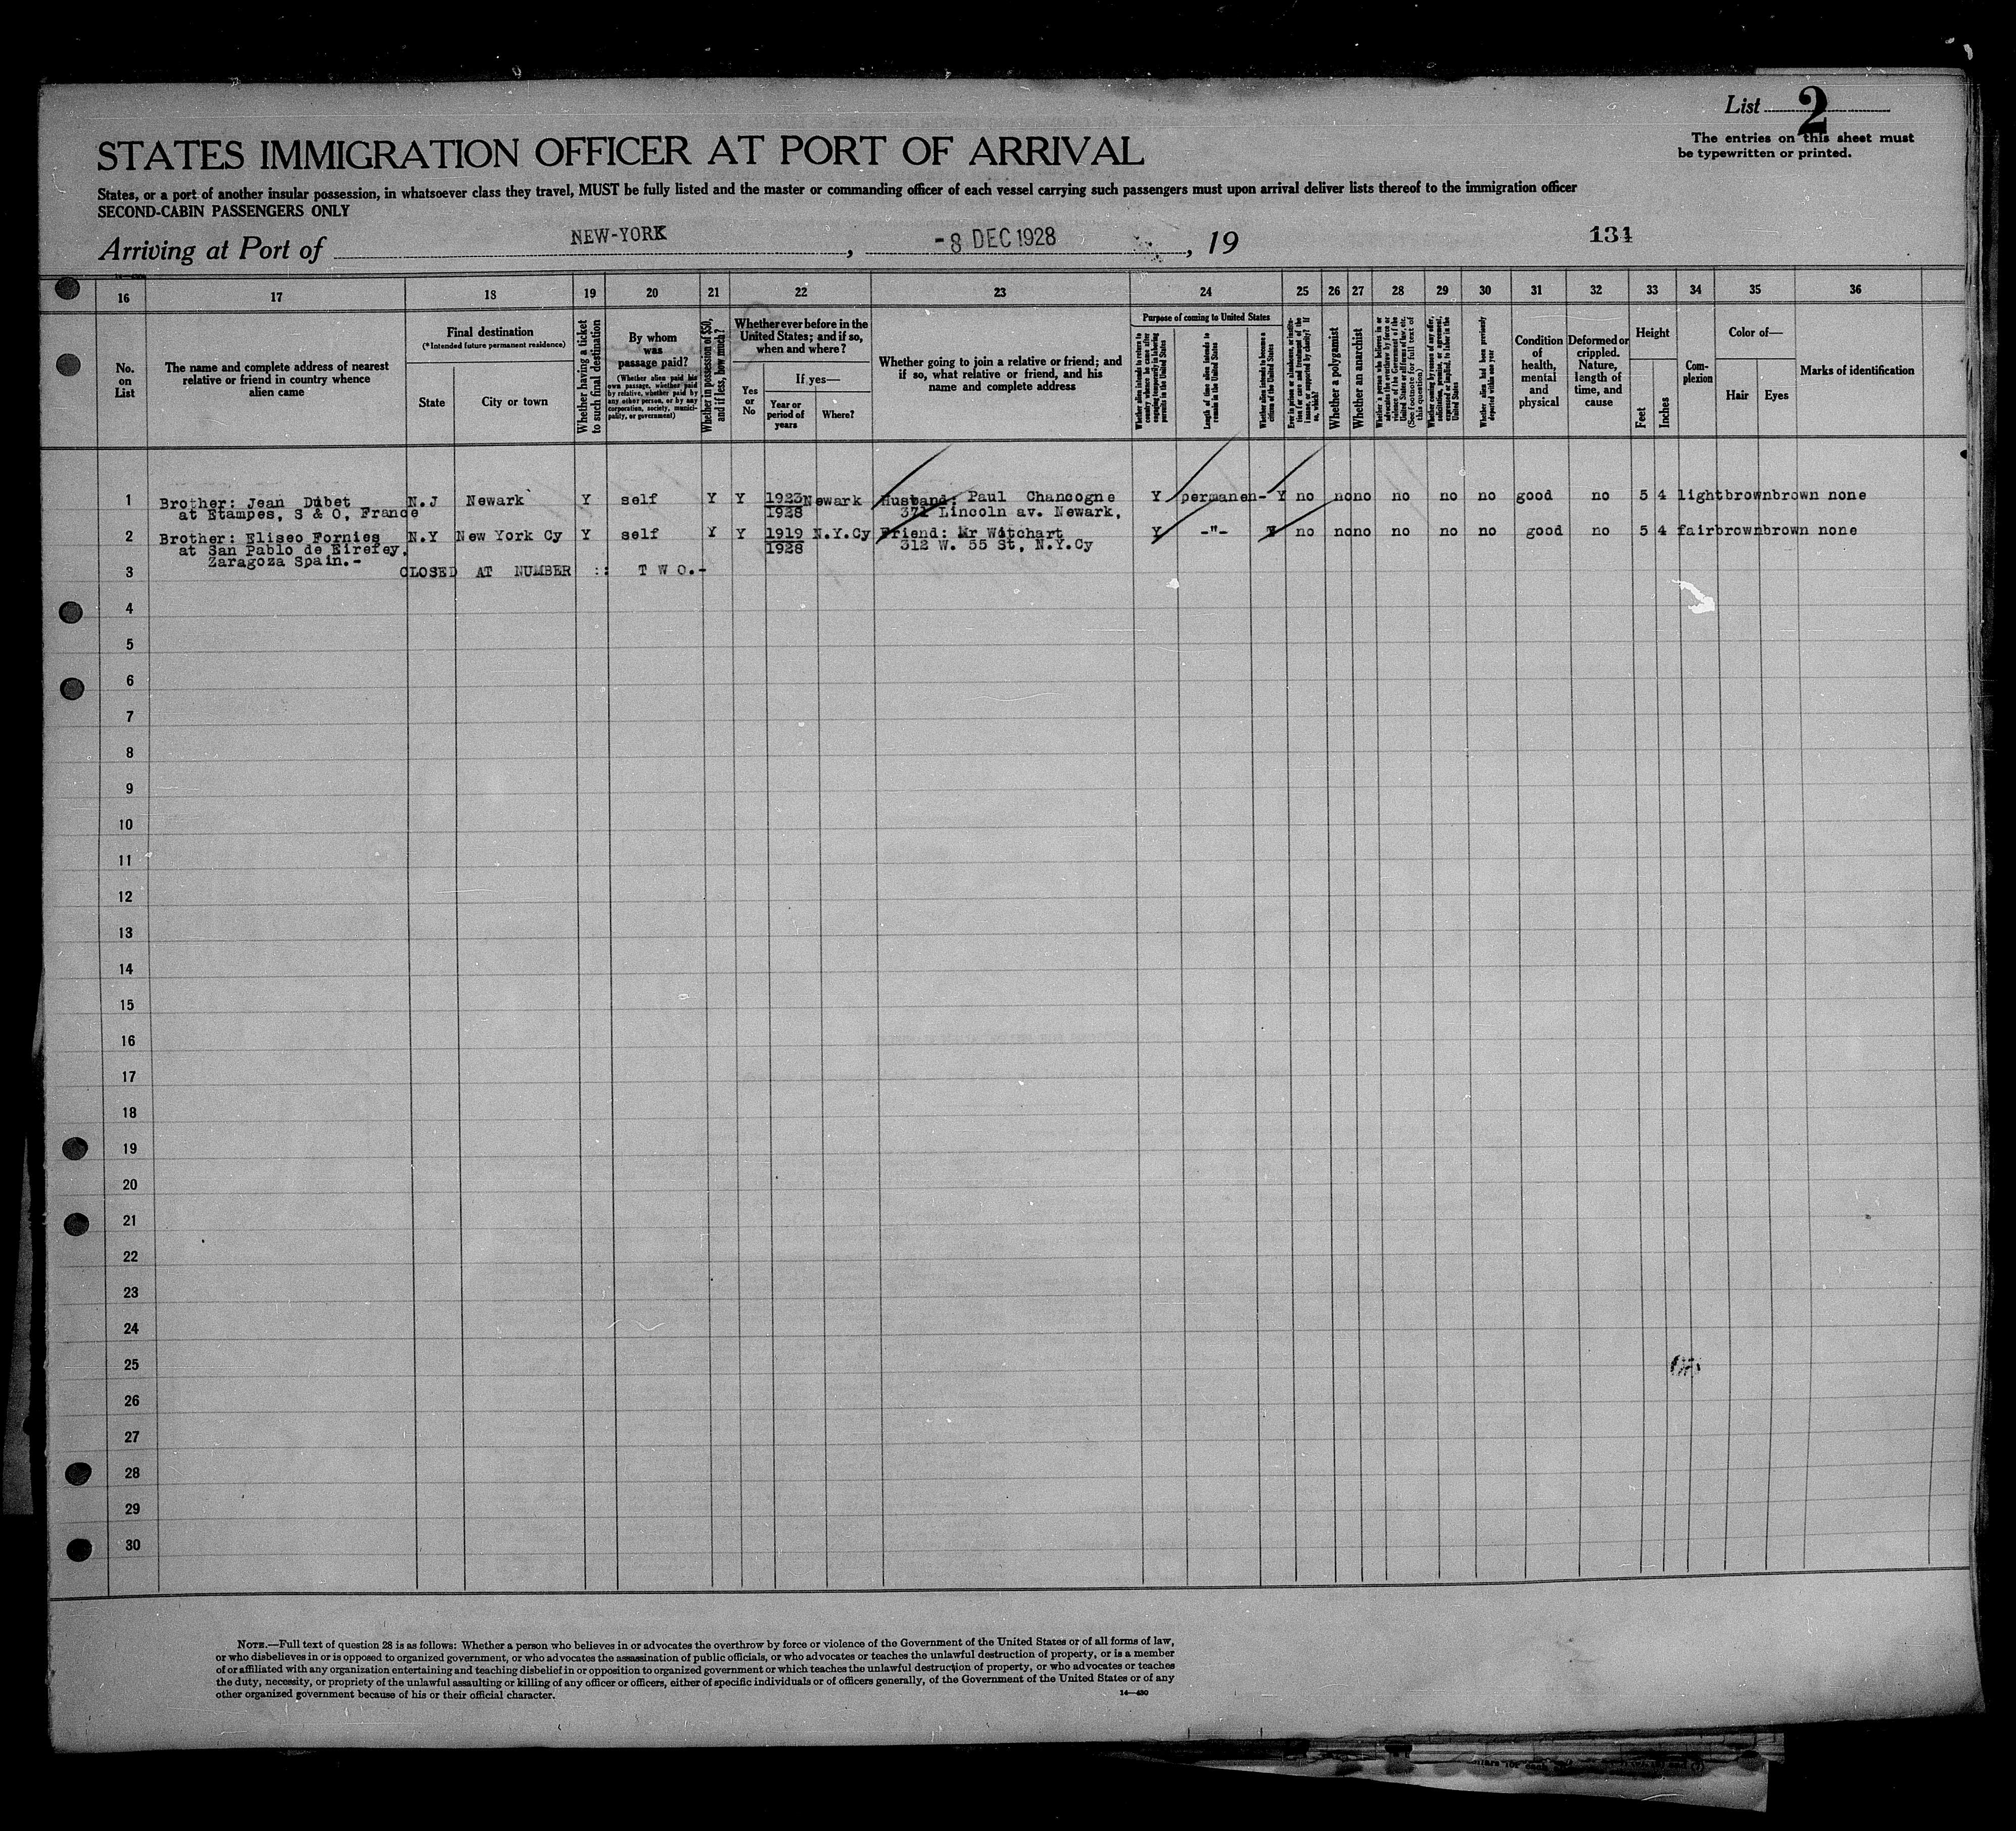 List 2
The entries on this sheet must
be typewritten or printed.
STATES IMMIGRATION OFFICER AT PORT OF ARRIVAL
States, or a port of another insular possession, in whatsoever class they travel, MUST be fully listed and the master or commanding officer of each vessel carrying such passengers must upon arrival deliver lists thereof to the immigration officer
SECOND-CABIN PASSENGERS ONLY
Arriving at Port of NEW-YORK, -8 DEC 1928, 19
131
16 17 18 19 20 21 22 23 24 25 26 27 28 29 30 31 32 33 34 35 36
No. on List
The name and complete address of nearest
relative or friend in country whence
alien came
Final destination
(*Intended future permanent residence)
State
City or town
Whether having a ticket
to such final destination
By whom
was
passage paid?
(Whether alien paid his
own passage, whether paid
by relative, whether paid by
any other person, or by any
corporation, society, munici-
pality, or government)
Whether in possession of $50,
and if less, how much?
Whether ever before in the
United States; and if so,
when and where?
Yes
or
No
If yes—
Year or
period of
years
Where?
Whether going to join a relative or friend; and
if so, what relative or friend, and his
name and complete address
Purpose of coming to United States
Whether alien intends to return to
country whence he came after
engaging temporarily in laboring
pursuits in the United States
Length of time alien intends to
remain in the United States
Whether alien intends to become a
citizen of the United States
Ever in prison or almshouse, or institu-
tion for care and treatment of the
insane, or supported by charity? If
so, which?
Whether a polygamist
Whether an anarchist
Whether a person who believes in or
advocates the overthrow by force or
violence of the Government of the
United States or all forms of law, etc.
(See footnote for full text of
this question)
Whether coming by reason of any offer,
solicitation, promise, or agreement,
expressed or implied, to labor in the
United States
Whether alien had been previously
deported within one year
Condition
of
health,
mental
and
physical
Deformed or
crippled.
Nature,
length of
time, and
cause
Height
Feet
Inches
Com-
plexion
Color of—
Hair
Eyes
Marks of identification
1 Brother: Jean Dubet N.J Newark Y self Y Y 1923 Newark Husband: Paul Chancogne Y permanen- Y no no no no no no good no 5 4 light brown brown none
at Etampes, S & O, France 1928 371 Lincoln av. Newark,
2 Brother: Eliseo Fornies N.Y New York Cy Y self Y Y 1919 N.Y.Cy Friend: Mr Witchart Y -"- Y no no no no no no good no 5 4 fair brown brown none
at San Pablo de Eirefey, 1928 312 W. 55 St, N.Y.Cy
Zaragoza Spain.-
3 CLOSED AT NUMBER :: T W O.-
4
5
6
7
8
9
10
11
12
13
14
15
16
17
18
19
20
21
22
23
24
25
26
27
28
29
30
NOTE.—Full text of question 28 is as follows: Whether a person who believes in or advocates the overthrow by force or violence of the Government of the United States or of all forms of law,
or who disbelieves in or is opposed to organized government, or who advocates the assassination of public officials, or who advocates or teaches the unlawful destruction of property, or is a member
of or affiliated with any organization entertaining and teaching disbelief in or opposition to organized government or which teaches the unlawful destruction of property, or who advocates or teaches
the duty, necessity, or propriety of the unlawful assaulting or killing of any officer or officers, either of specific individuals or of officers generally, of the Government of the United States or of any
other organized government because of his or their official character.
14—430